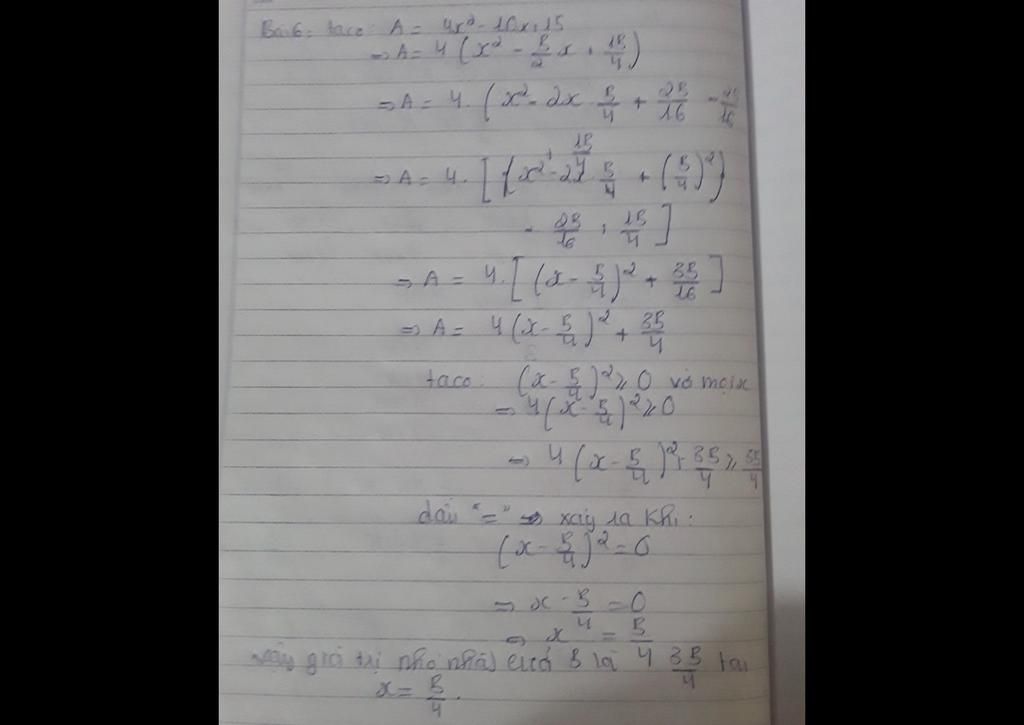 Bài 6: ta có: A = 4x² - 10x + 15
=> A = 4 (x² - 5/2 x + 15/4)
=> A = 4. (x² - 2x 5/4 + 25/16 - 25/16
+ 15/4
=> A = 4. [ (x² - 2x 5/4 + (5/4)²)
- 25/16 + 15/4 ]
=> A = 4. [ (x - 5/4)² + 35/16 ]
=> A = 4 (x - 5/4)² + 35/4
ta có: (x - 5/4)² ≥ 0 với mọi x
=> 4 (x - 5/4)² ≥ 0
=> 4 (x - 5/4)² + 35/4 ≥ 35/4
dấu "=" => xảy ra khi:
(x - 5/4)² = 0
=> x - 5/4 = 0
=> x = 5/4
Vậy giá trị nhỏ nhất của B là 35/4 tại
x = 5/4.